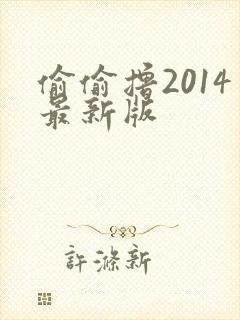 偷偷撸2014
最新版
許滌新